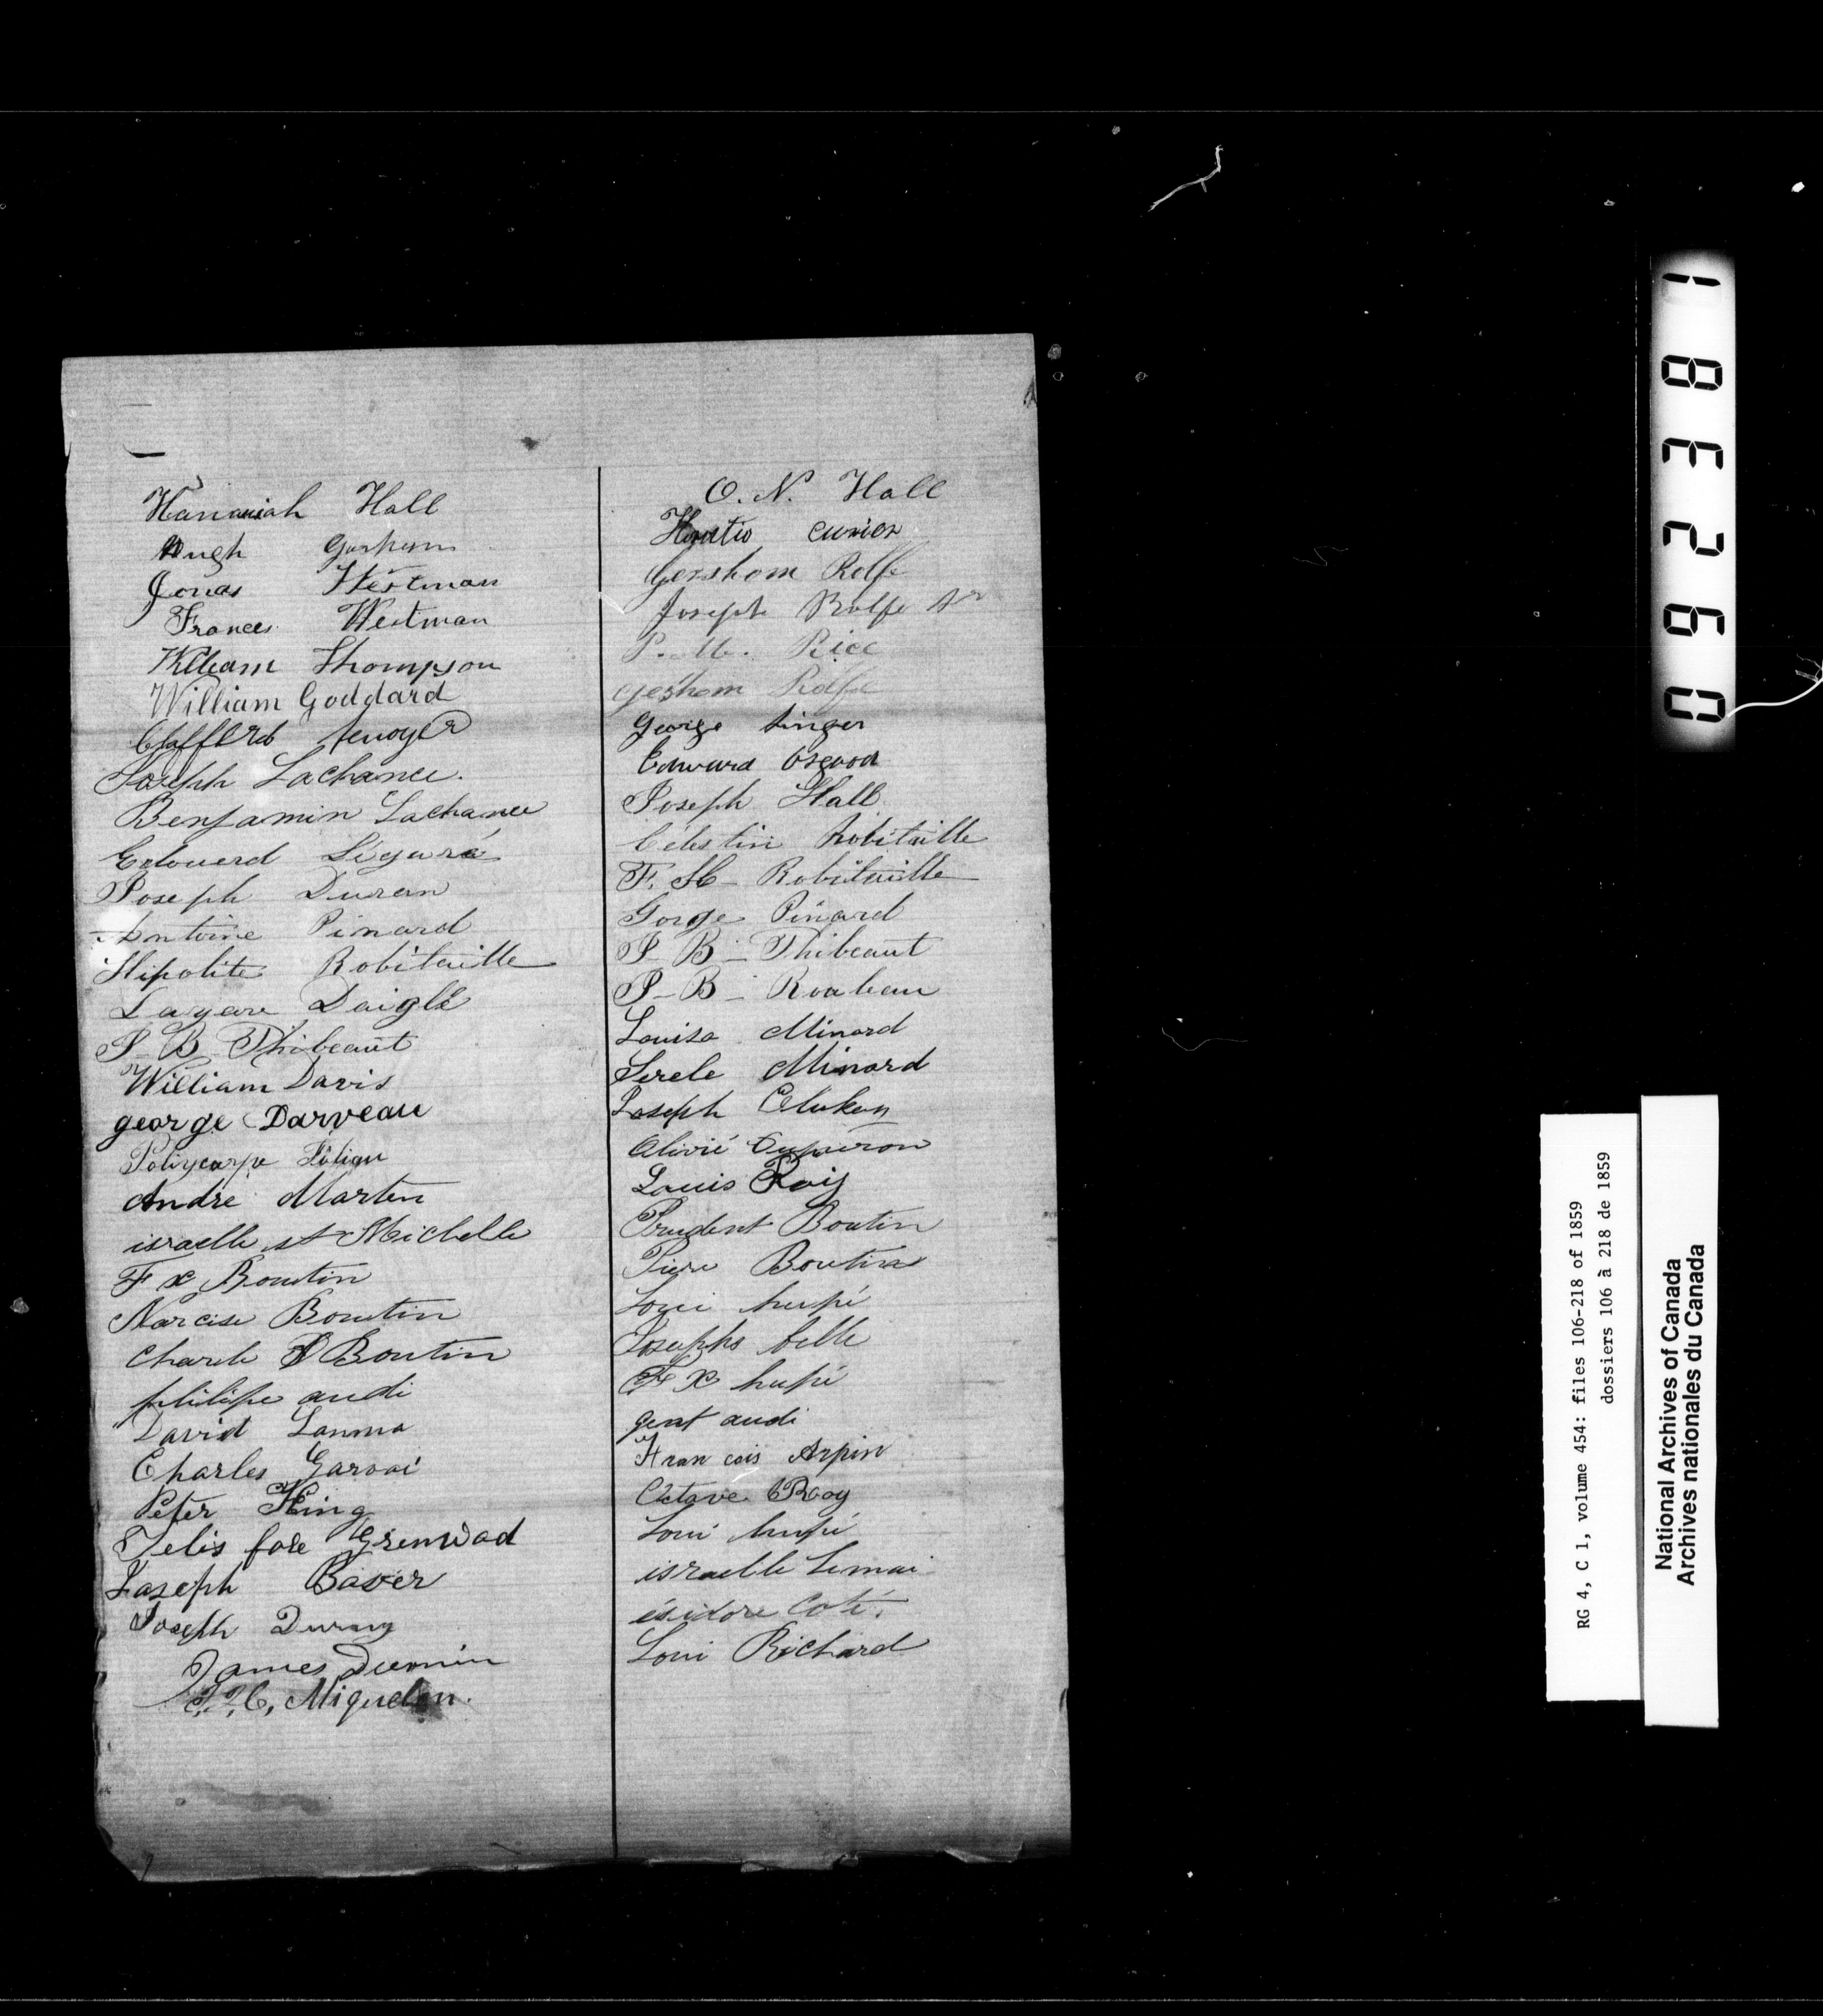 Hananiah Hall
Hugh Gorham
Jonas Westman
Frances Westman
William Thompson
William Goddard
Joseph Lachance.
Benjamin Lachance
Edouerd Légaré
Joseph Duran
Antoine Pinard
Hipolite Robitaille
Lagare Daigle
J B Thibeaut
William Davis
george Darveau
Polycarpe
André Martin
israelle st Michelle
F x Boutin
Narcise Boutin
Charle Boutin
philipe audi
David Lanma
Charles Garvai
Peter King
Grenwod
Joseph Baver
Joseph Duran
James
Miquelon.
O. N. Hall
Horatio Currier
Gershom Rolfe
Joseph Rolfe
Rice
Gershom Rolfe
George
Edward Osgood
Joseph Hall
Célestin Robitaille
F. H- Robitaille
Gorge Pinard
J- B- Thibeaut
J- B-
Louisa Minard
Minard
Joseph
Olivié
Louis Roij
Prudent Boutin
Piere Boutin
Loui hupé
Josephs belle
F X hupé
audi
Francois Arpin
Octave Rooy
Loui hupé
israelle Lemai
ésidore Coté.
Loui Richard
182390
RG 4, C 1, volume 454: files 106-218 of 1859
dossiers 106 à 218 de 1859
National Archives of Canada
Archives nationales du Canada